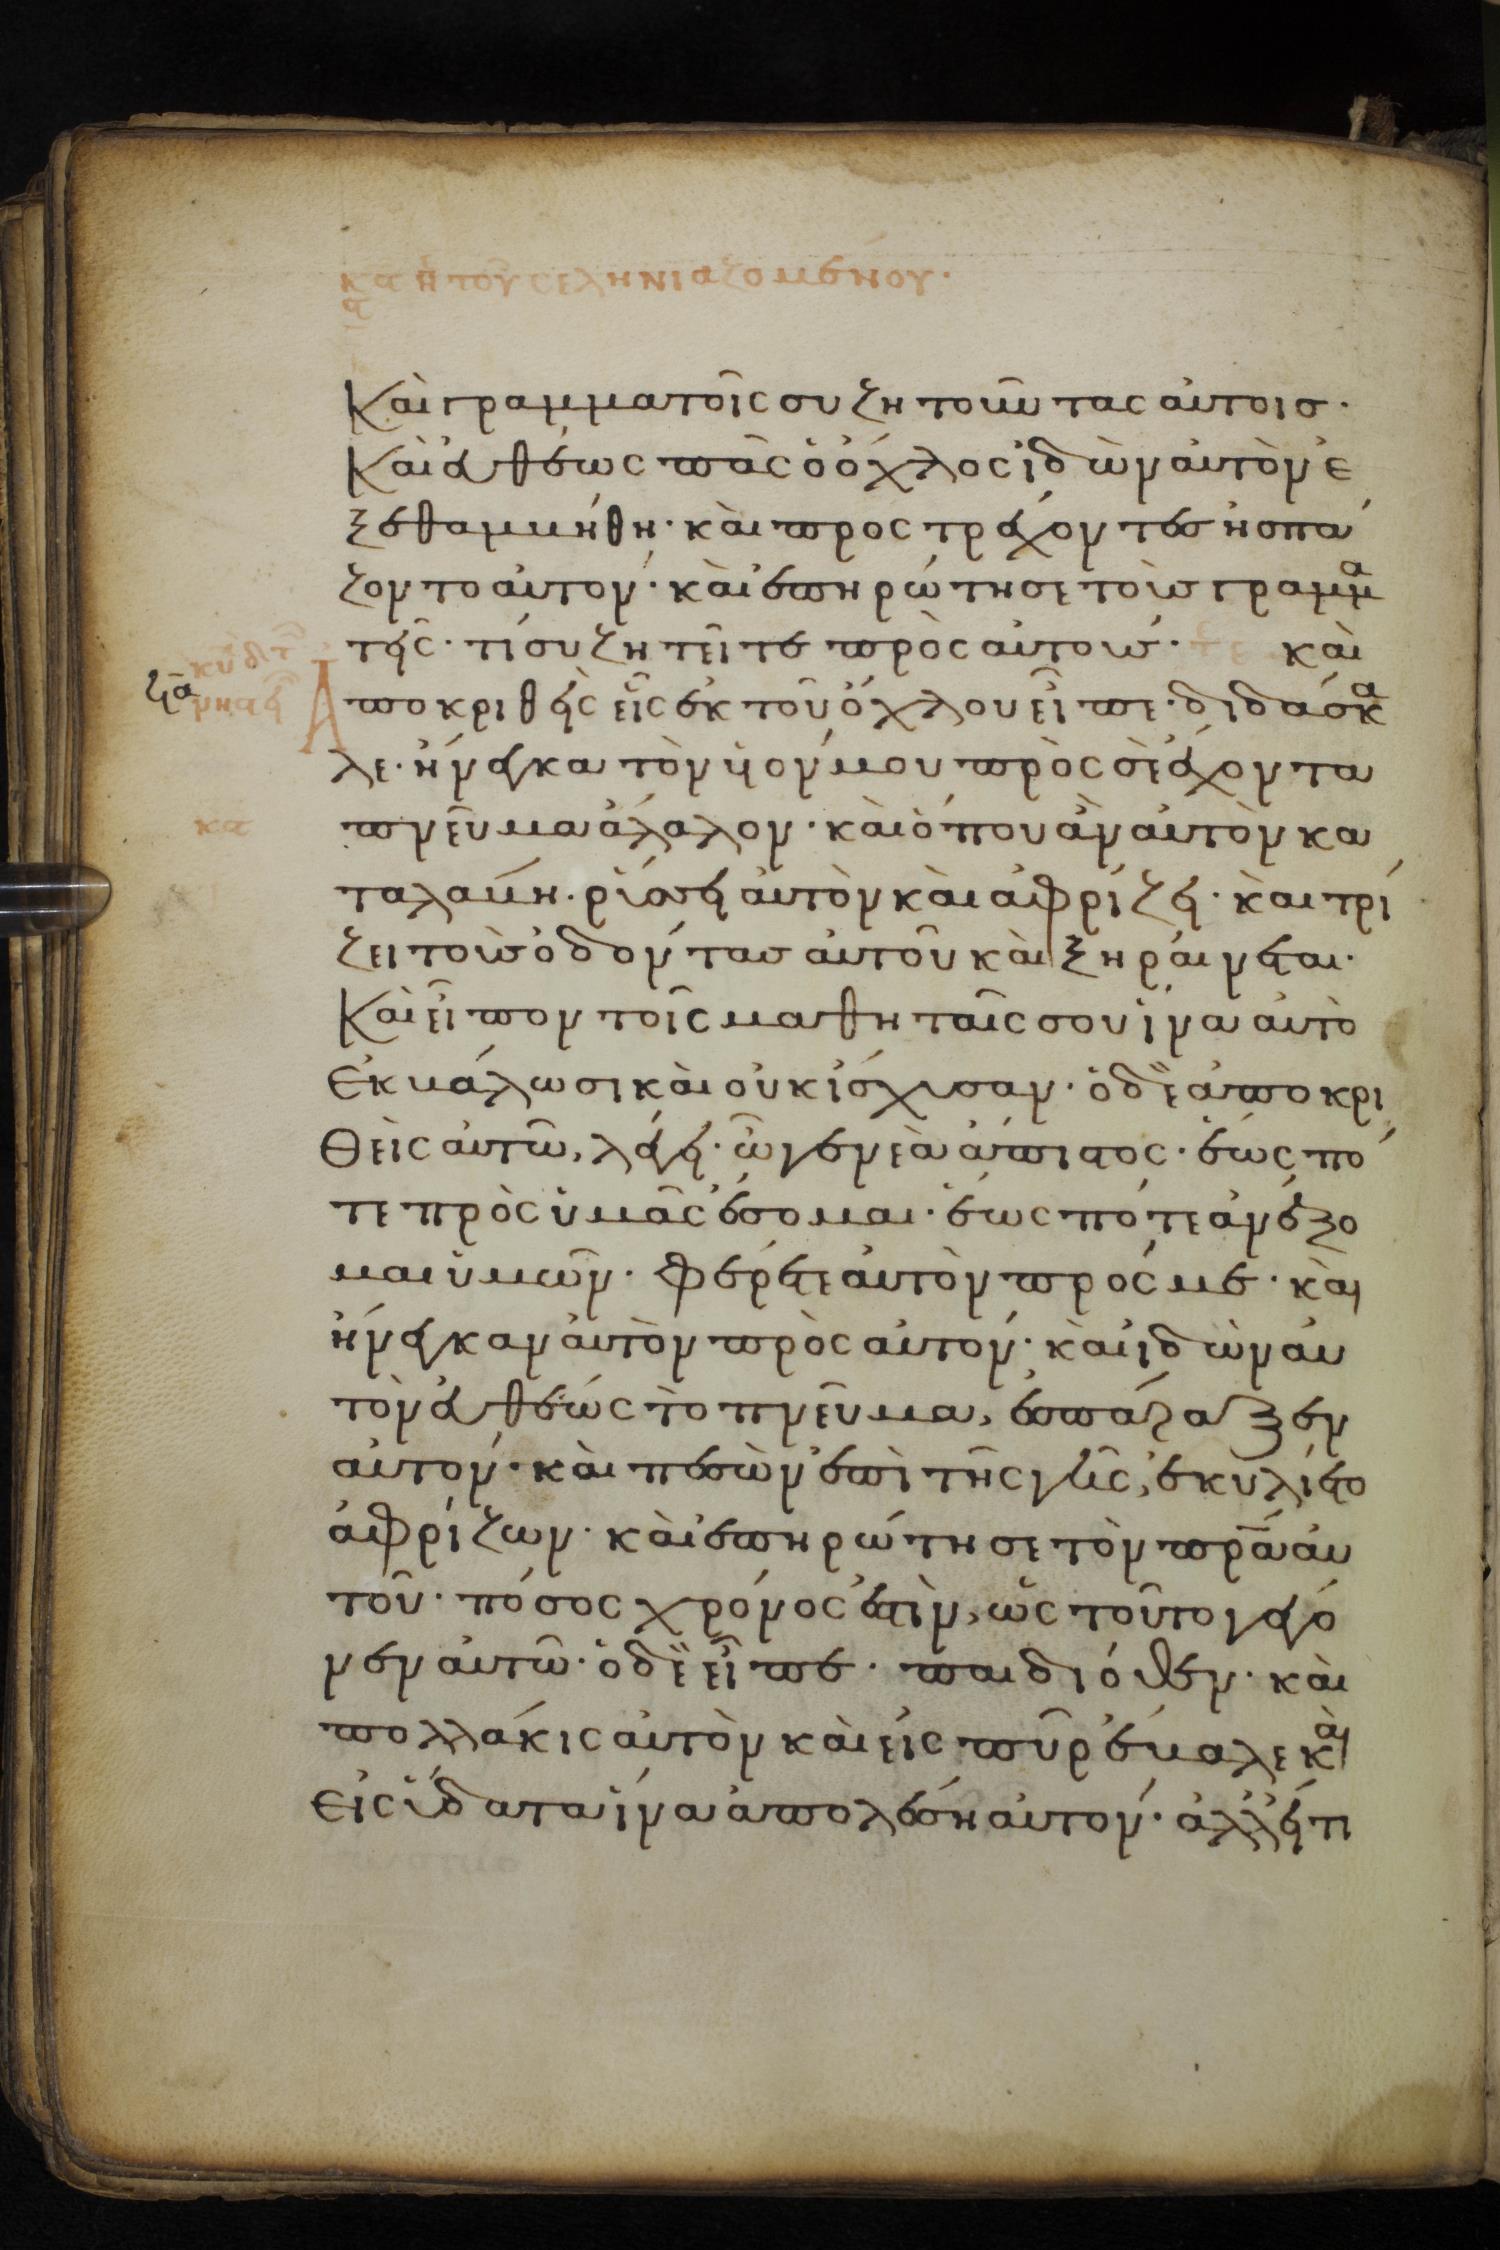 τοῦ σεληνιαζομένου·
Καὶ γραμματοῖς συζητοῦντας αὐτοισ·
Καὶ εὐθέως πᾶς ὁ ὄχλος ἰδὼν αὐτὸν ἐ
ξεθαμβήθη· καὶ προςτρέχοντες ἠσπά
ζοντο αὐτον· καὶ ἐπηρώτησε τοὺσ γραμμα
τεῖς· τί συζητεῖτε πρὸς αὐτούσ· καὶ
Ἀποκριθεὶς εἷς ἐκ τοῦ ὄχλου εἶπε· διδάσκα
λε· ἤνεγκα τὸν υἱόν μου πρὸς σὲ ἔχοντα
πνεῦμα ἄλαλον· καὶ ὅπου ἂν αὐτὸν κα
ταλάβη· ῥίσσει αὐτὸν καὶ ἀφρίζει· καὶ τρί
ζει τοὺσ ὀδόντασ αὐτοῦ καὶ ξηραίνεται·
Καὶ εἶπον τοῖς μαθηταῖς σου ἵνα αὐτὸ
ἐκβάλωσι καὶ οὐκ ἴσχυσαν· ὁ δὲ ἀποκρι
θεὶς αὐτῶ, λέγει· ὦ γενεὰ ἄπιστος· ἕως πό
τε πρὸς ὑμᾶς ἔσομαι· ἕως πότε ἀνέξο
μαι ὑμῶν· φέρετε αὐτὸν πρός με· καὶ
ἤνεγκαν αὐτὸν πρὸς αὐτον· καὶ ἰδὼν αὐ
τὸν εὐθέως τὸ πνεῦμα, ἐσπάραξεν
αὐτον· καὶ πεσὼν ἐπὶ τῆς γῆς, ἐκυλίετο
ἀφρίζων· καὶ ἐπηρώτησε τὸν πρα αὐ
τοῦ· πόσος χρόνος ἐστὶν, ὡς τοῦτο γέγο
νεν αὐτῶ· ὁ δὲ εἶπε· παιδιόθεν· καὶ
πολλάκις αὐτὸν καὶ εἰς πῦρ ἔβαλε καὶ
εἰς ὕδατα ἵνα ἀπολέση αὐτον· ἀλλ εἴ τι